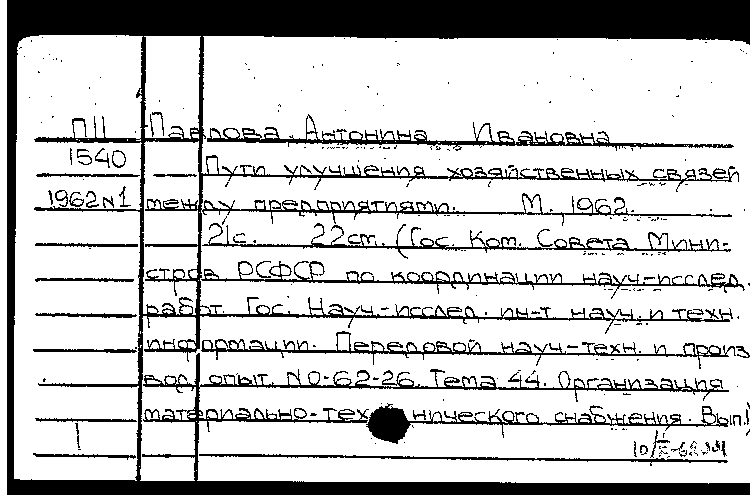 П11 Павлова, Антонина Ивановна
1540 Пути улучшения хозяйственных связей
1962 N1 между предприятиями. М., 1962.
21с. 22см. (Гос. Ком. Совета Мини-
стров РСФСР по координации науч-исслед.
работ. Гос. Науч-исслед. ин-т науч. и техн.
информации. Передовой науч-техн. и произ
вод, опыт. N0-62-26. Тема 44. Организация
материально-технического снабжения. Вып.1